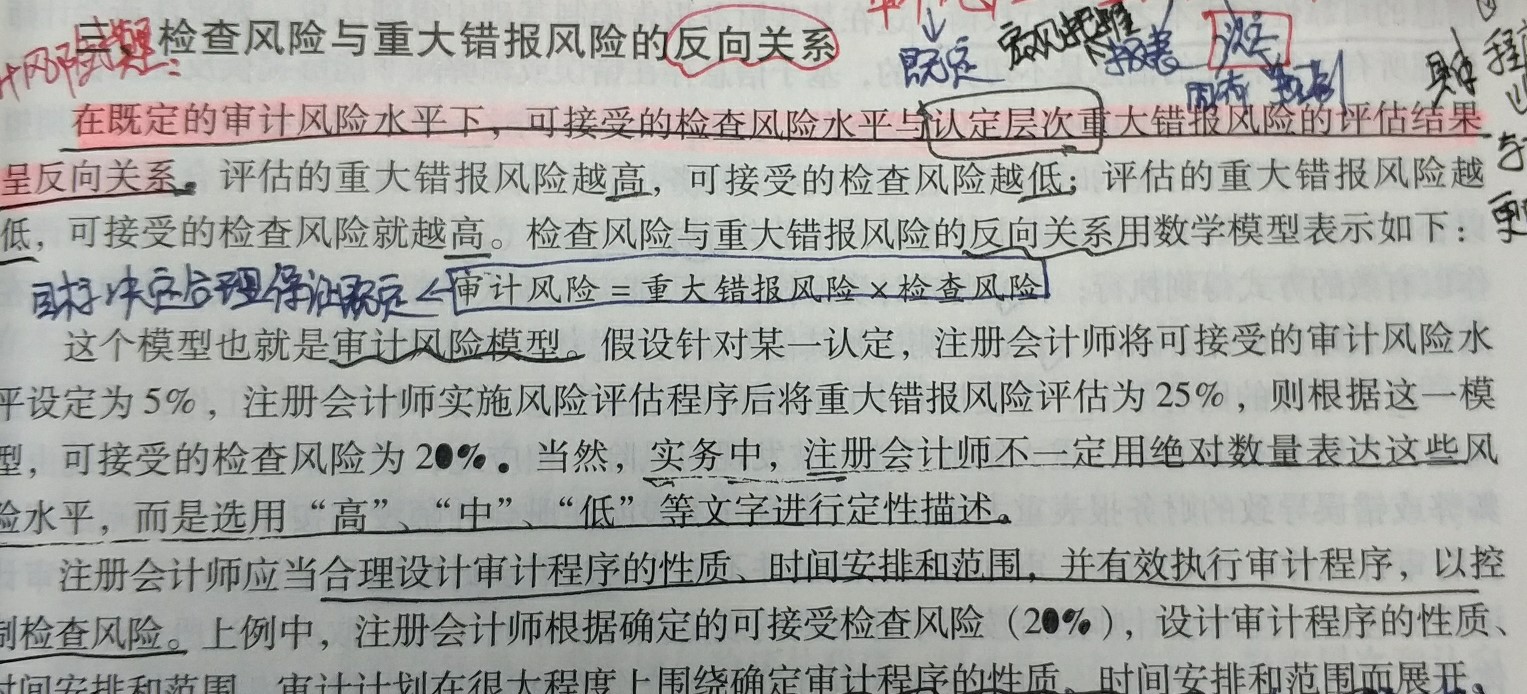 三、检查风险与重大错报风险的反向关系
既定 报表 认定
在既定的审计风险水平下，可接受的检查风险水平与认定层次重大错报风险的评估结果
呈反向关系。评估的重大错报风险越高，可接受的检查风险越低；评估的重大错报风险越
低，可接受的检查风险就越高。检查风险与重大错报风险的反向关系用数学模型表示如下：
目标决定合理保证既定<审计风险=重大错报风险×检查风险
这个模型也就是审计风险模型。假设针对某一认定，注册会计师将可接受的审计风险水
平设定为5%，注册会计师实施风险评估程序后将重大错报风险评估为25%，则根据这一模
型，可接受的检查风险为20%。当然，实务中，注册会计师不一定用绝对数量表达这些风
险水平，而是选用“高”、“中”、“低”等文字进行定性描述。
注册会计师应当合理设计审计程序的性质、时间安排和范围，并有效执行审计程序，以控
制检查风险。上例中，注册会计师根据确定的可接受检查风险（20%），设计审计程序的性质、
时间安排和范围。审计计划在很大程度上围绕确定审计程序的性质、时间安排和范围而展开。